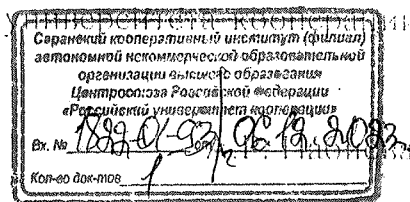 Саранский кооперативный институт (филиал)
автономной некоммерческой образовательной
организации высшего образования
Центросоюза Российской Федерации
«Российский университет кооперации»
Вх. № 1822-01-93 от 06.12.2023
Кол-во док-тов 1